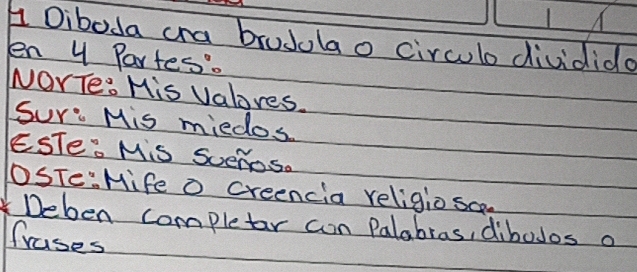 1 Diboda cna brudula o circulo dividido
en 4 Partes:
NorTe: Mis Valores.
Sur: Mis miedos.
ESTe: Mis Sueños.
OSTe: Mi fe o creencia religiosa.
* Deben completar con Palabras, dibudos o
frases